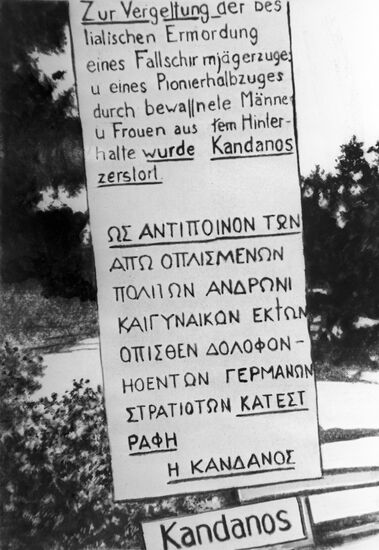 Zur Vergeltung der bes
tialischen Ermordung
eines Fallschirmjägerzuges
u eines Pionierhalbzuges
durch bewaffnete Männer
u Frauen aus dem Hinter-
halte wurde Kandanos
zerstört.
ΩΣ ΑΝΤΙΠΟΙΝΟΝ ΤΩΝ
ΑΠΩ ΟΠΛΙΣΜΕΝΩΝ
ΠΟΛΙΤΩΝ ΑΝΔΡΩΝΙ
ΚΑΙΓΥΝΑΙΚΩΝ ΕΚΤΩΝ
ΟΠΙΣΘΕΝ ΔΟΛΟΦΟΝ-
ΗΘΕΝΤΩΝ ΓΕΡΜΑΝΩΝ
ΣΤΡΑΤΙΟΤΩΝ ΚΑΤΕΣΤ
ΡΑΦΗ
Η ΚΑΝΔΑΝΟΣ
Kandanos